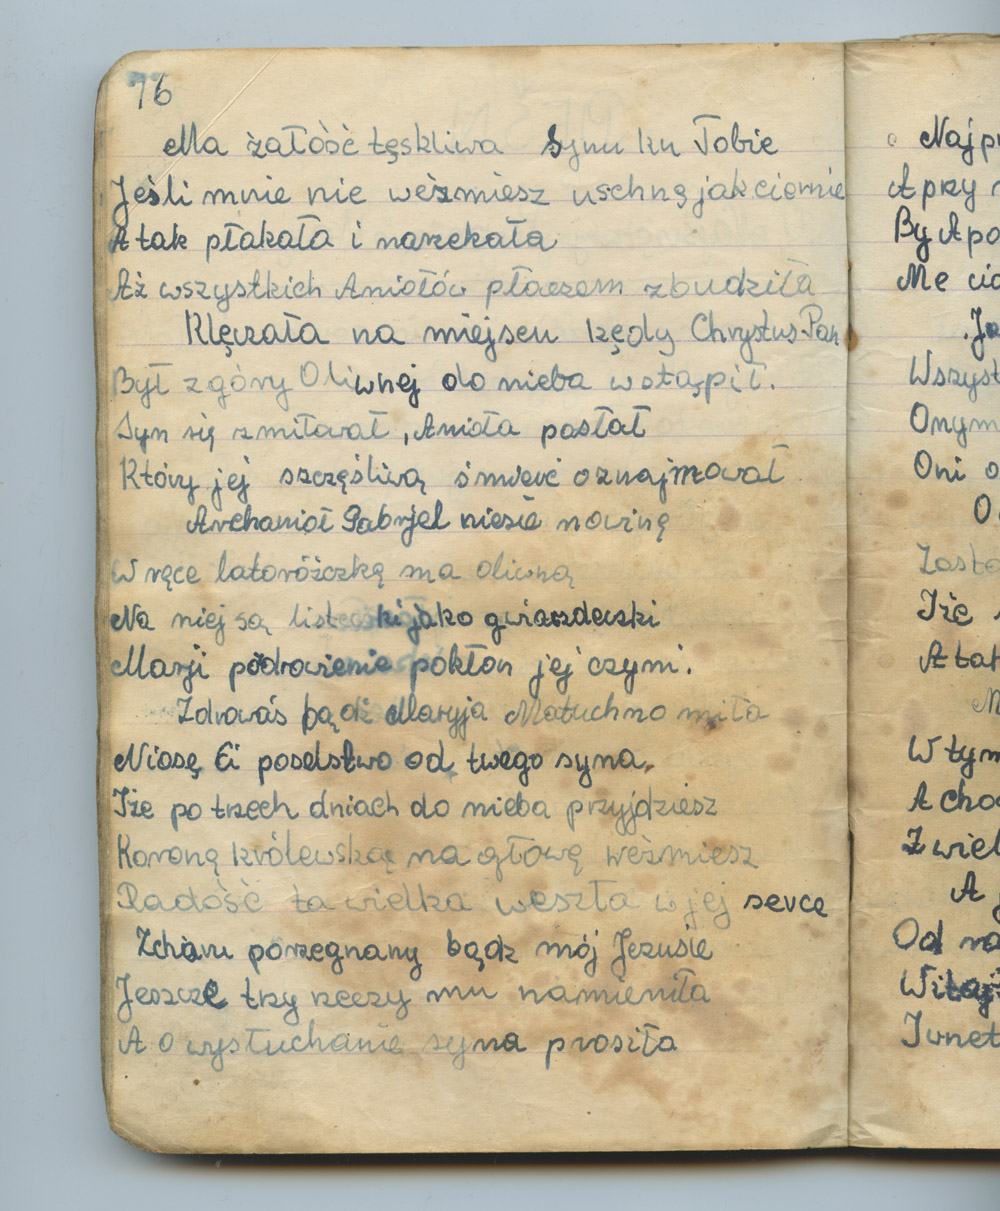 76
Ma żałość tęskliwa Synu ku Tobie
Jeśli mnie nie weźmiesz uschnę jak ciernie
A tak płakała i narzekała
Aż wszystkich Aniołów płaczem zbudziła
Klęczała na miejscu kędy Chrystus Pan
Był z góry Oliwnej do nieba wstąpił.
Syn się zmiłował, Anioła posłał
Który jej szczęśliwą śmierć oznajmował
Archanioł Gabryjel niesie nowinę
W ręce latoróżczkę ma oliwną
Na niej są listeczki jako gwiazdeczki
Maryi pozdrowienie pokłon jej czyni.
Zdrowaś bądź Maryja Matuchno miła
Niosę Ci poselstwo od twego syna,
Iże po trzech dniach do nieba przyjdziesz
Koronę królewską na głowę weźmiesz
Radość ta wielka weszła w jej serce
Zchäru porzegnany bądź mój Jezusie
Jeszcze trzy rzeczy mu namieniła
A o wysłuchanie syna prosiła
Najp
A przy
By Apo
Me
Je
Wszyst
Onym
Oni o
O
Zosta
Iże
A tak
M
W tym
A choc
Z wiel
A
Od na
Witaj
Iwnet